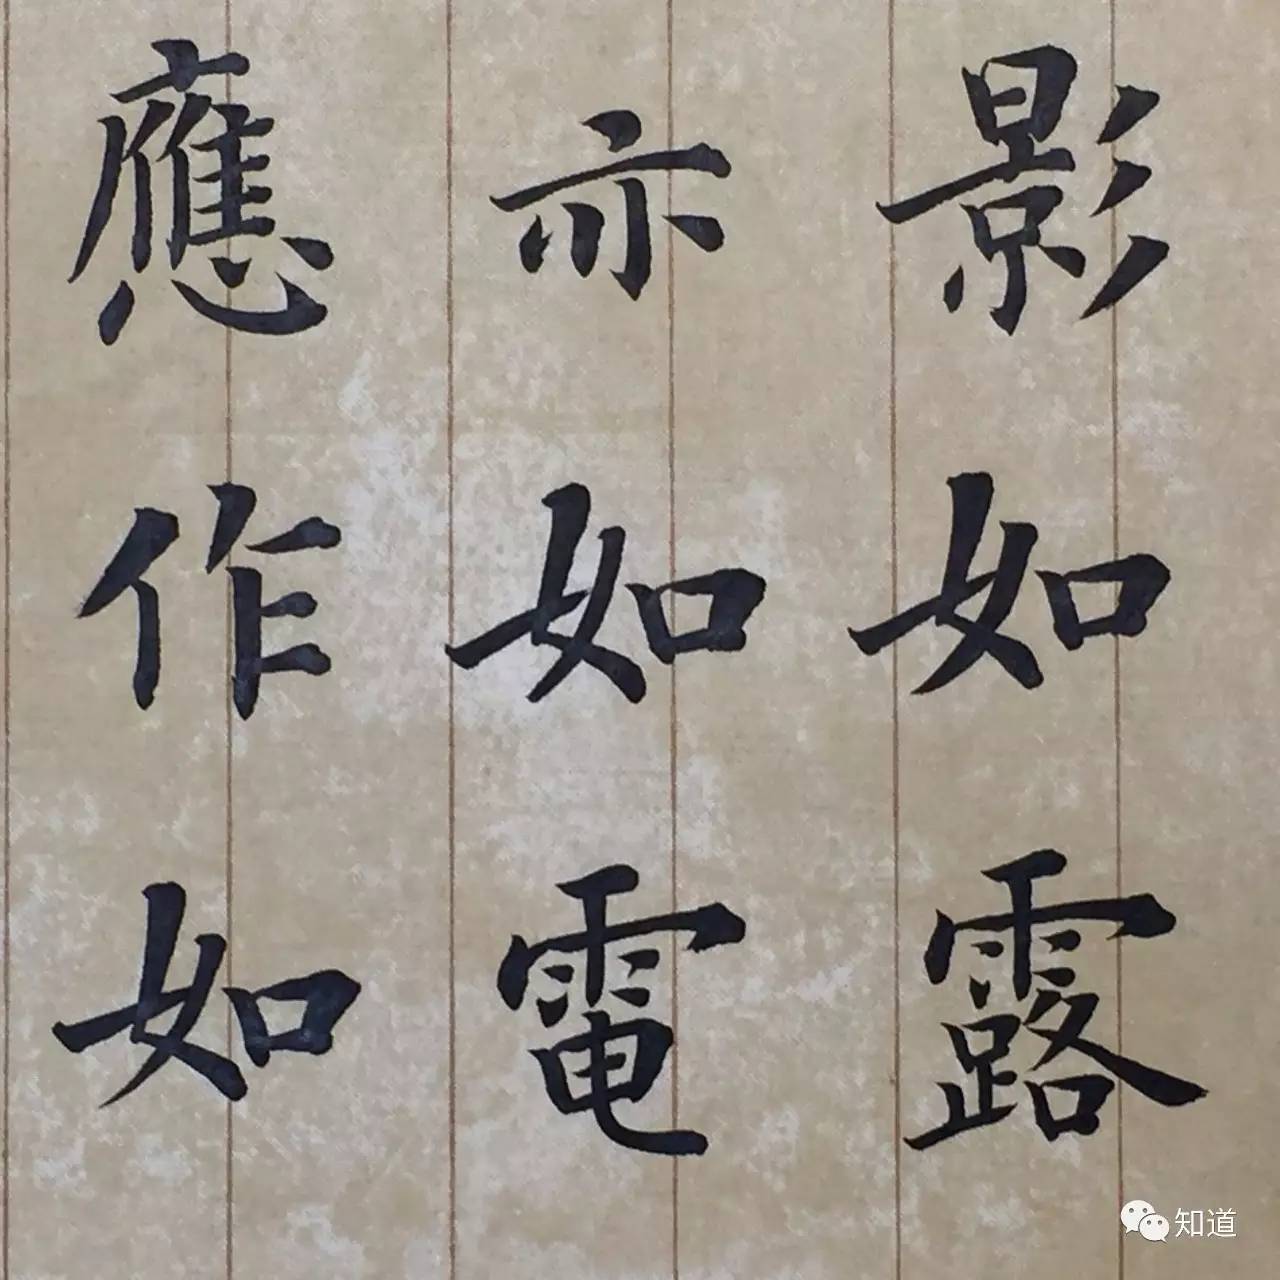 影如露
亦如電
應作如
知道